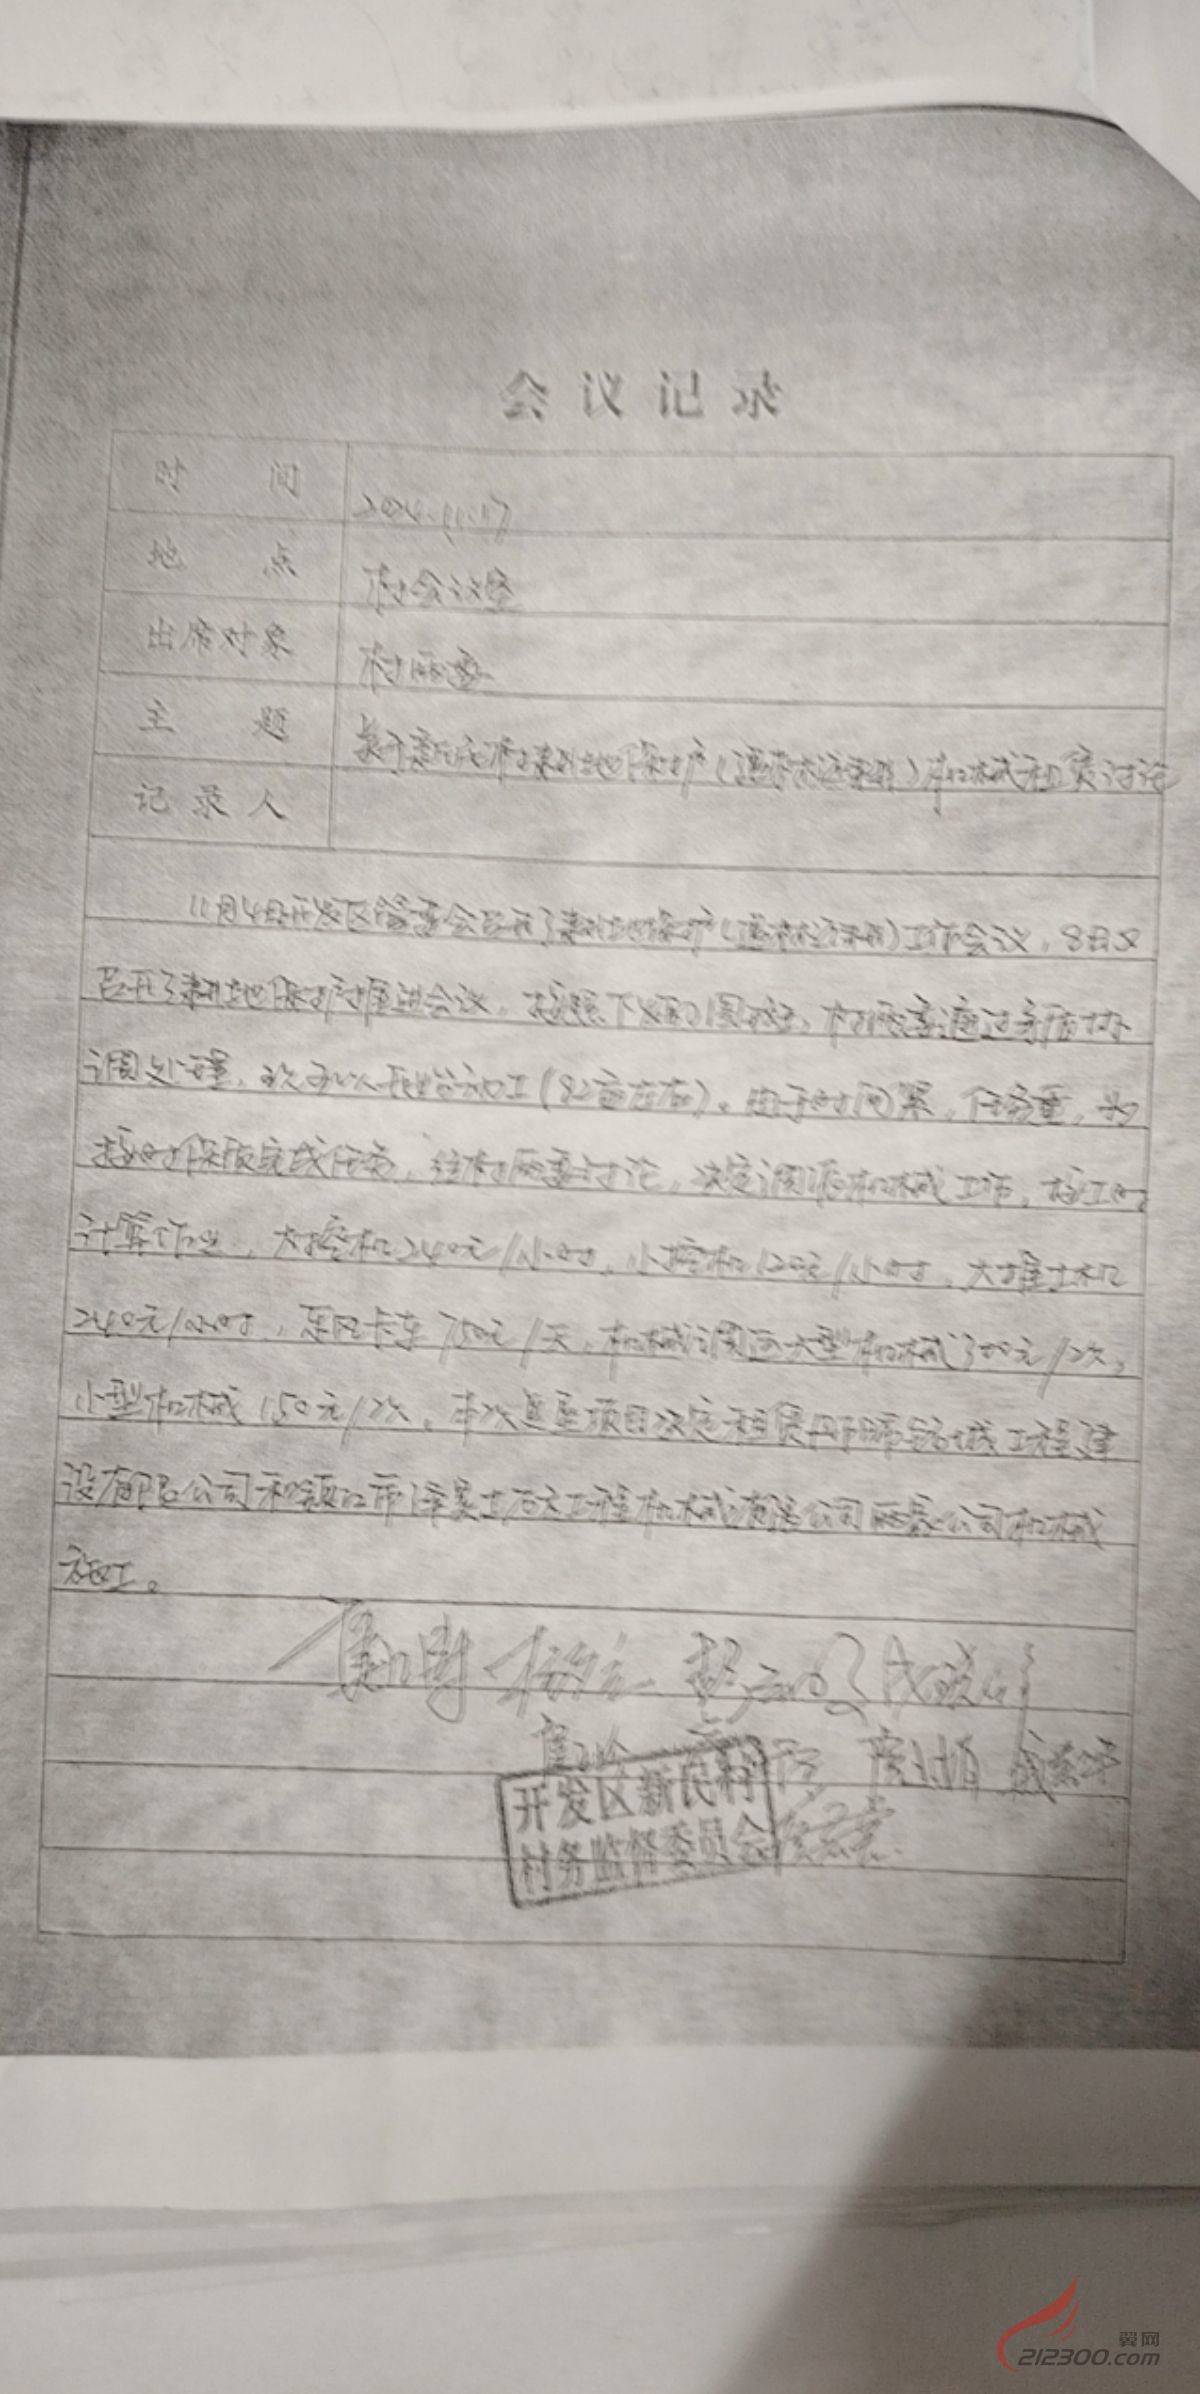 会议记录
时间 2024.11.17
地点 村会议室
出席对象 村两委
主题 关于新民村耕地保护(退林还耕)机械租赁讨论
记录人
11月4日开发区管委会召开了耕地保护(退林还耕)工作会议,8日又
召开了耕地保护推进会议,按照下发的图斑,村两委通过前后协
调处理,现可以开始动工(82亩左右)。由于时间紧,任务重,为
按时保质完成任务,经村两委讨论,决定调派机械工作,按工时
计算作业,大挖机240元/小时,小挖机120元/小时,大推土机
240元/小时,东风卡车750元/天,机械调运大型机械300元/次,
小型机械150元/次。本次复垦项目决定租赁丹阳城工程建
设有限公司和镇江市土石方工程机械有限公司两家公司机械
施工。
开发区新民村
村务监督委员会
翼网
212300.com